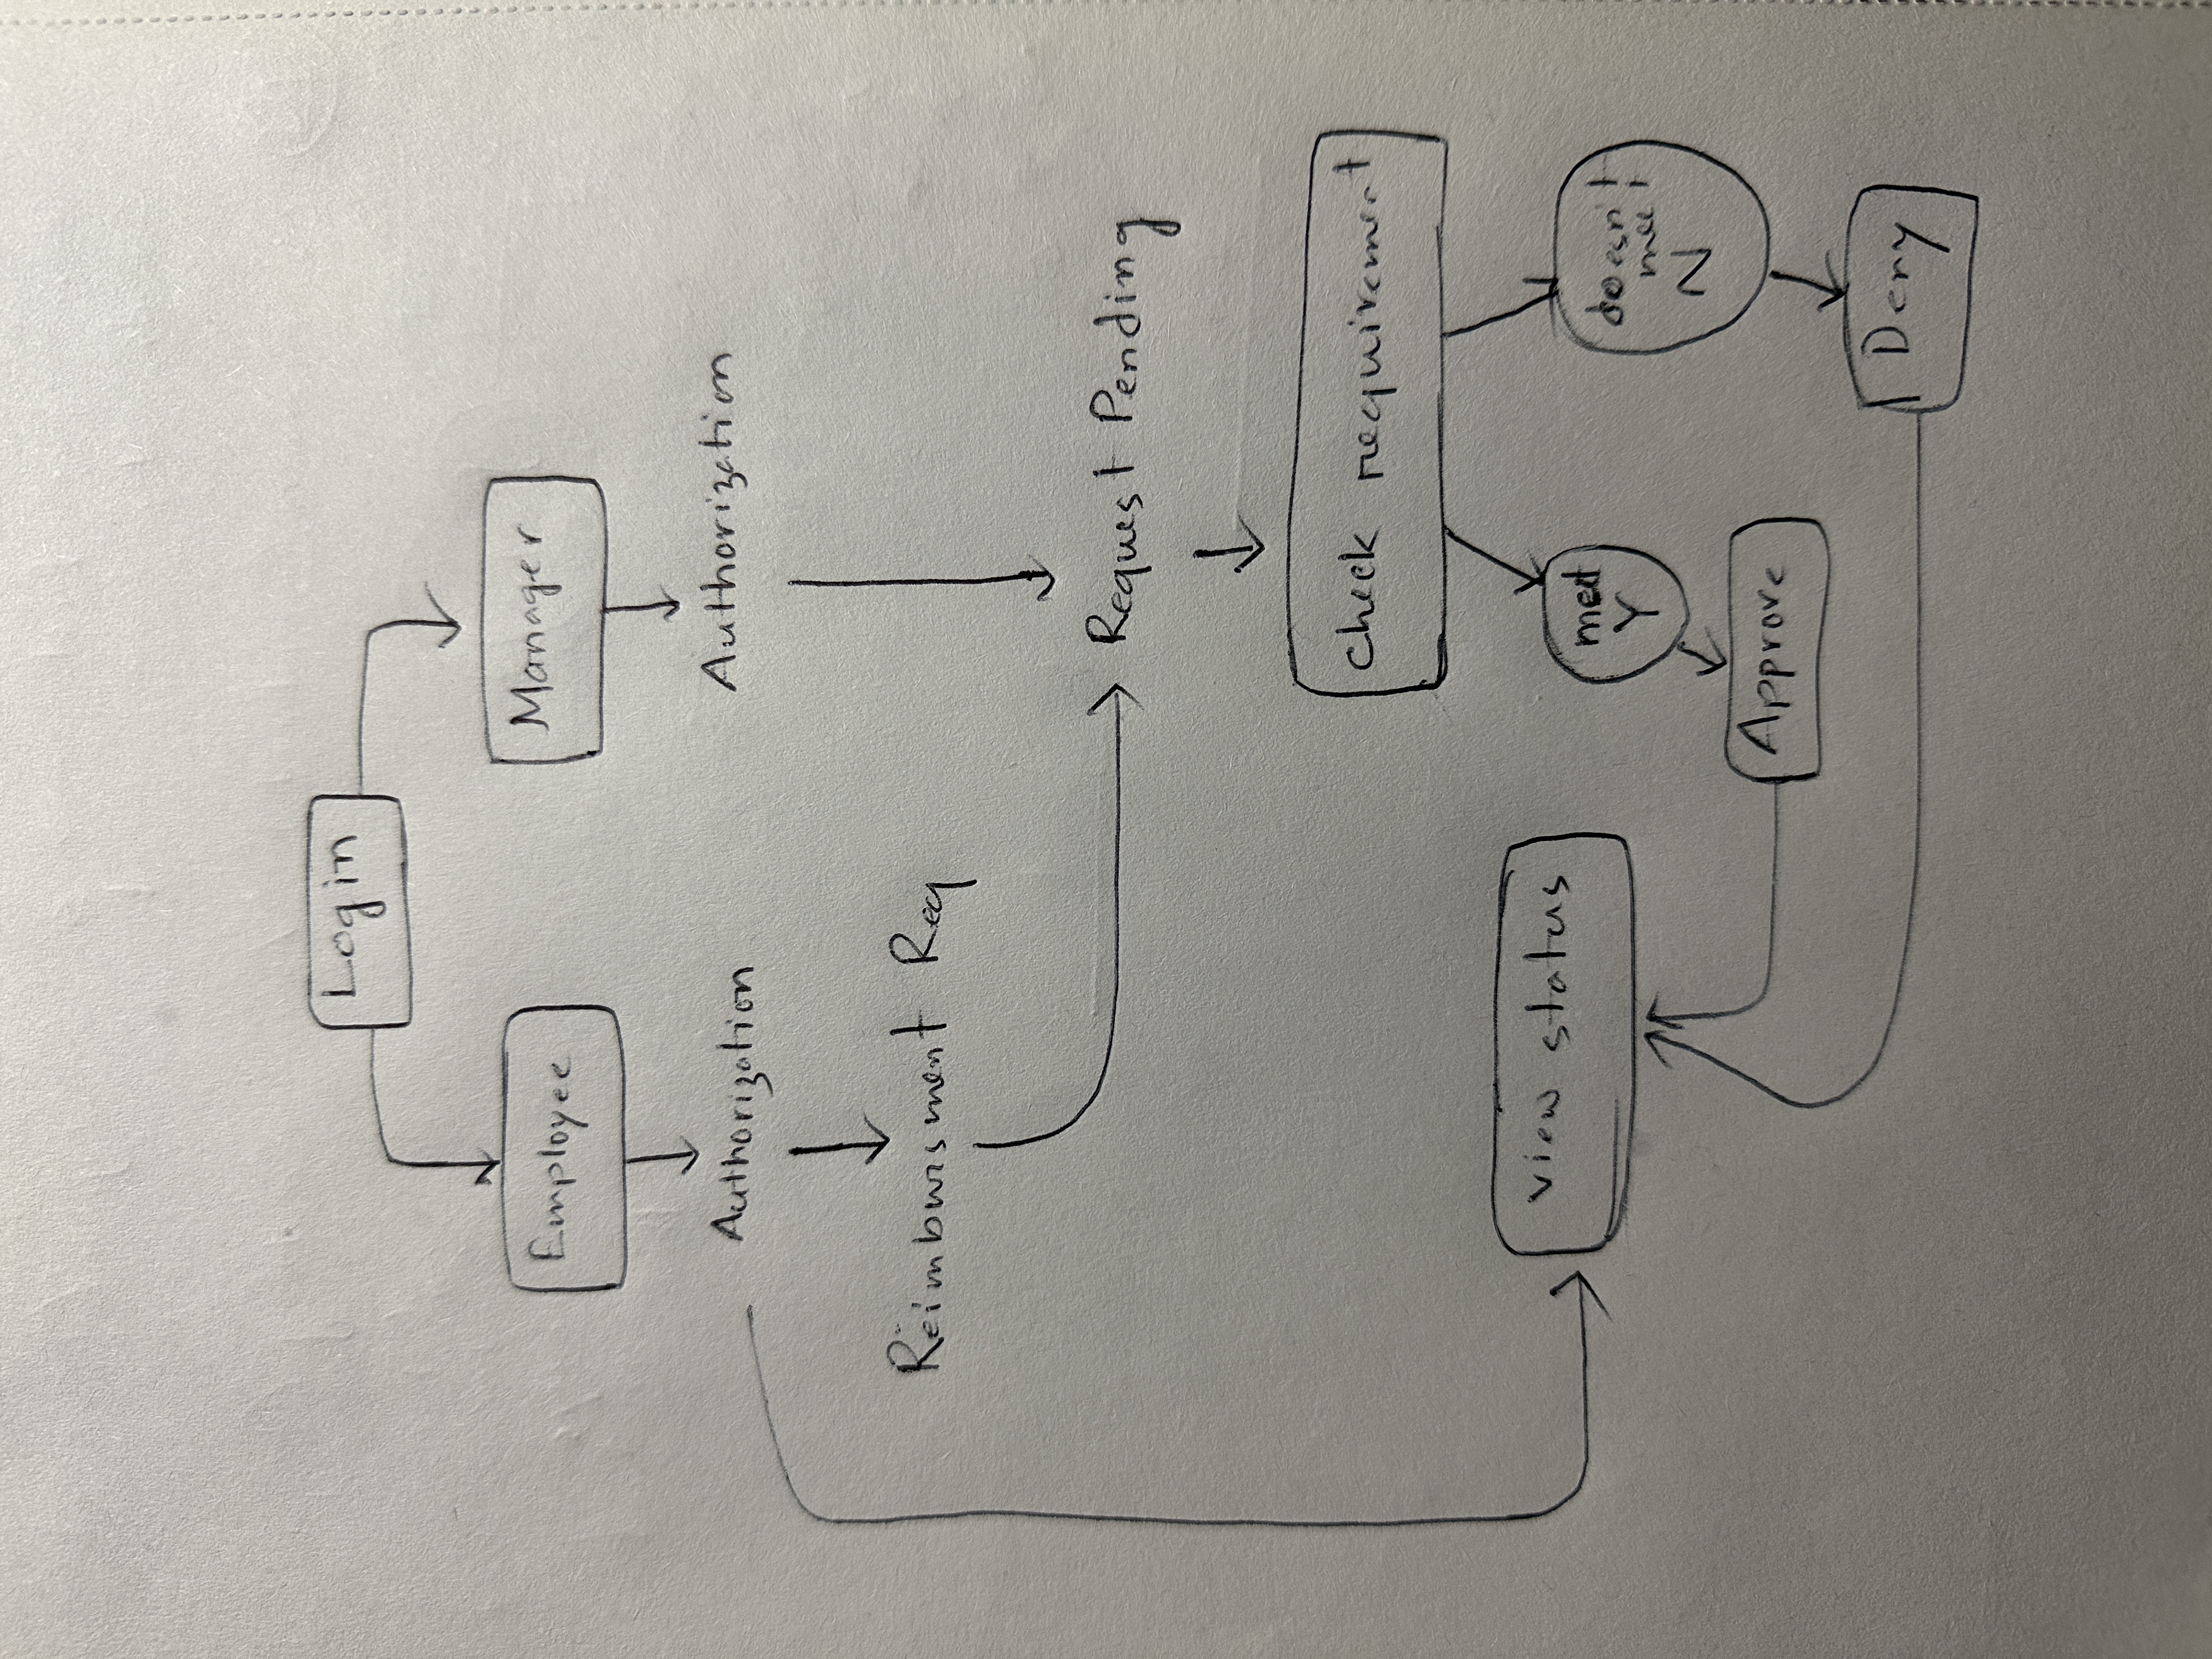 Login
Employee
Manager
Authorization
Authorization
Reimbursment Req
Request Pending
check requirement
view status
meet
Y
doesn't
meet
N
Approve
Deny